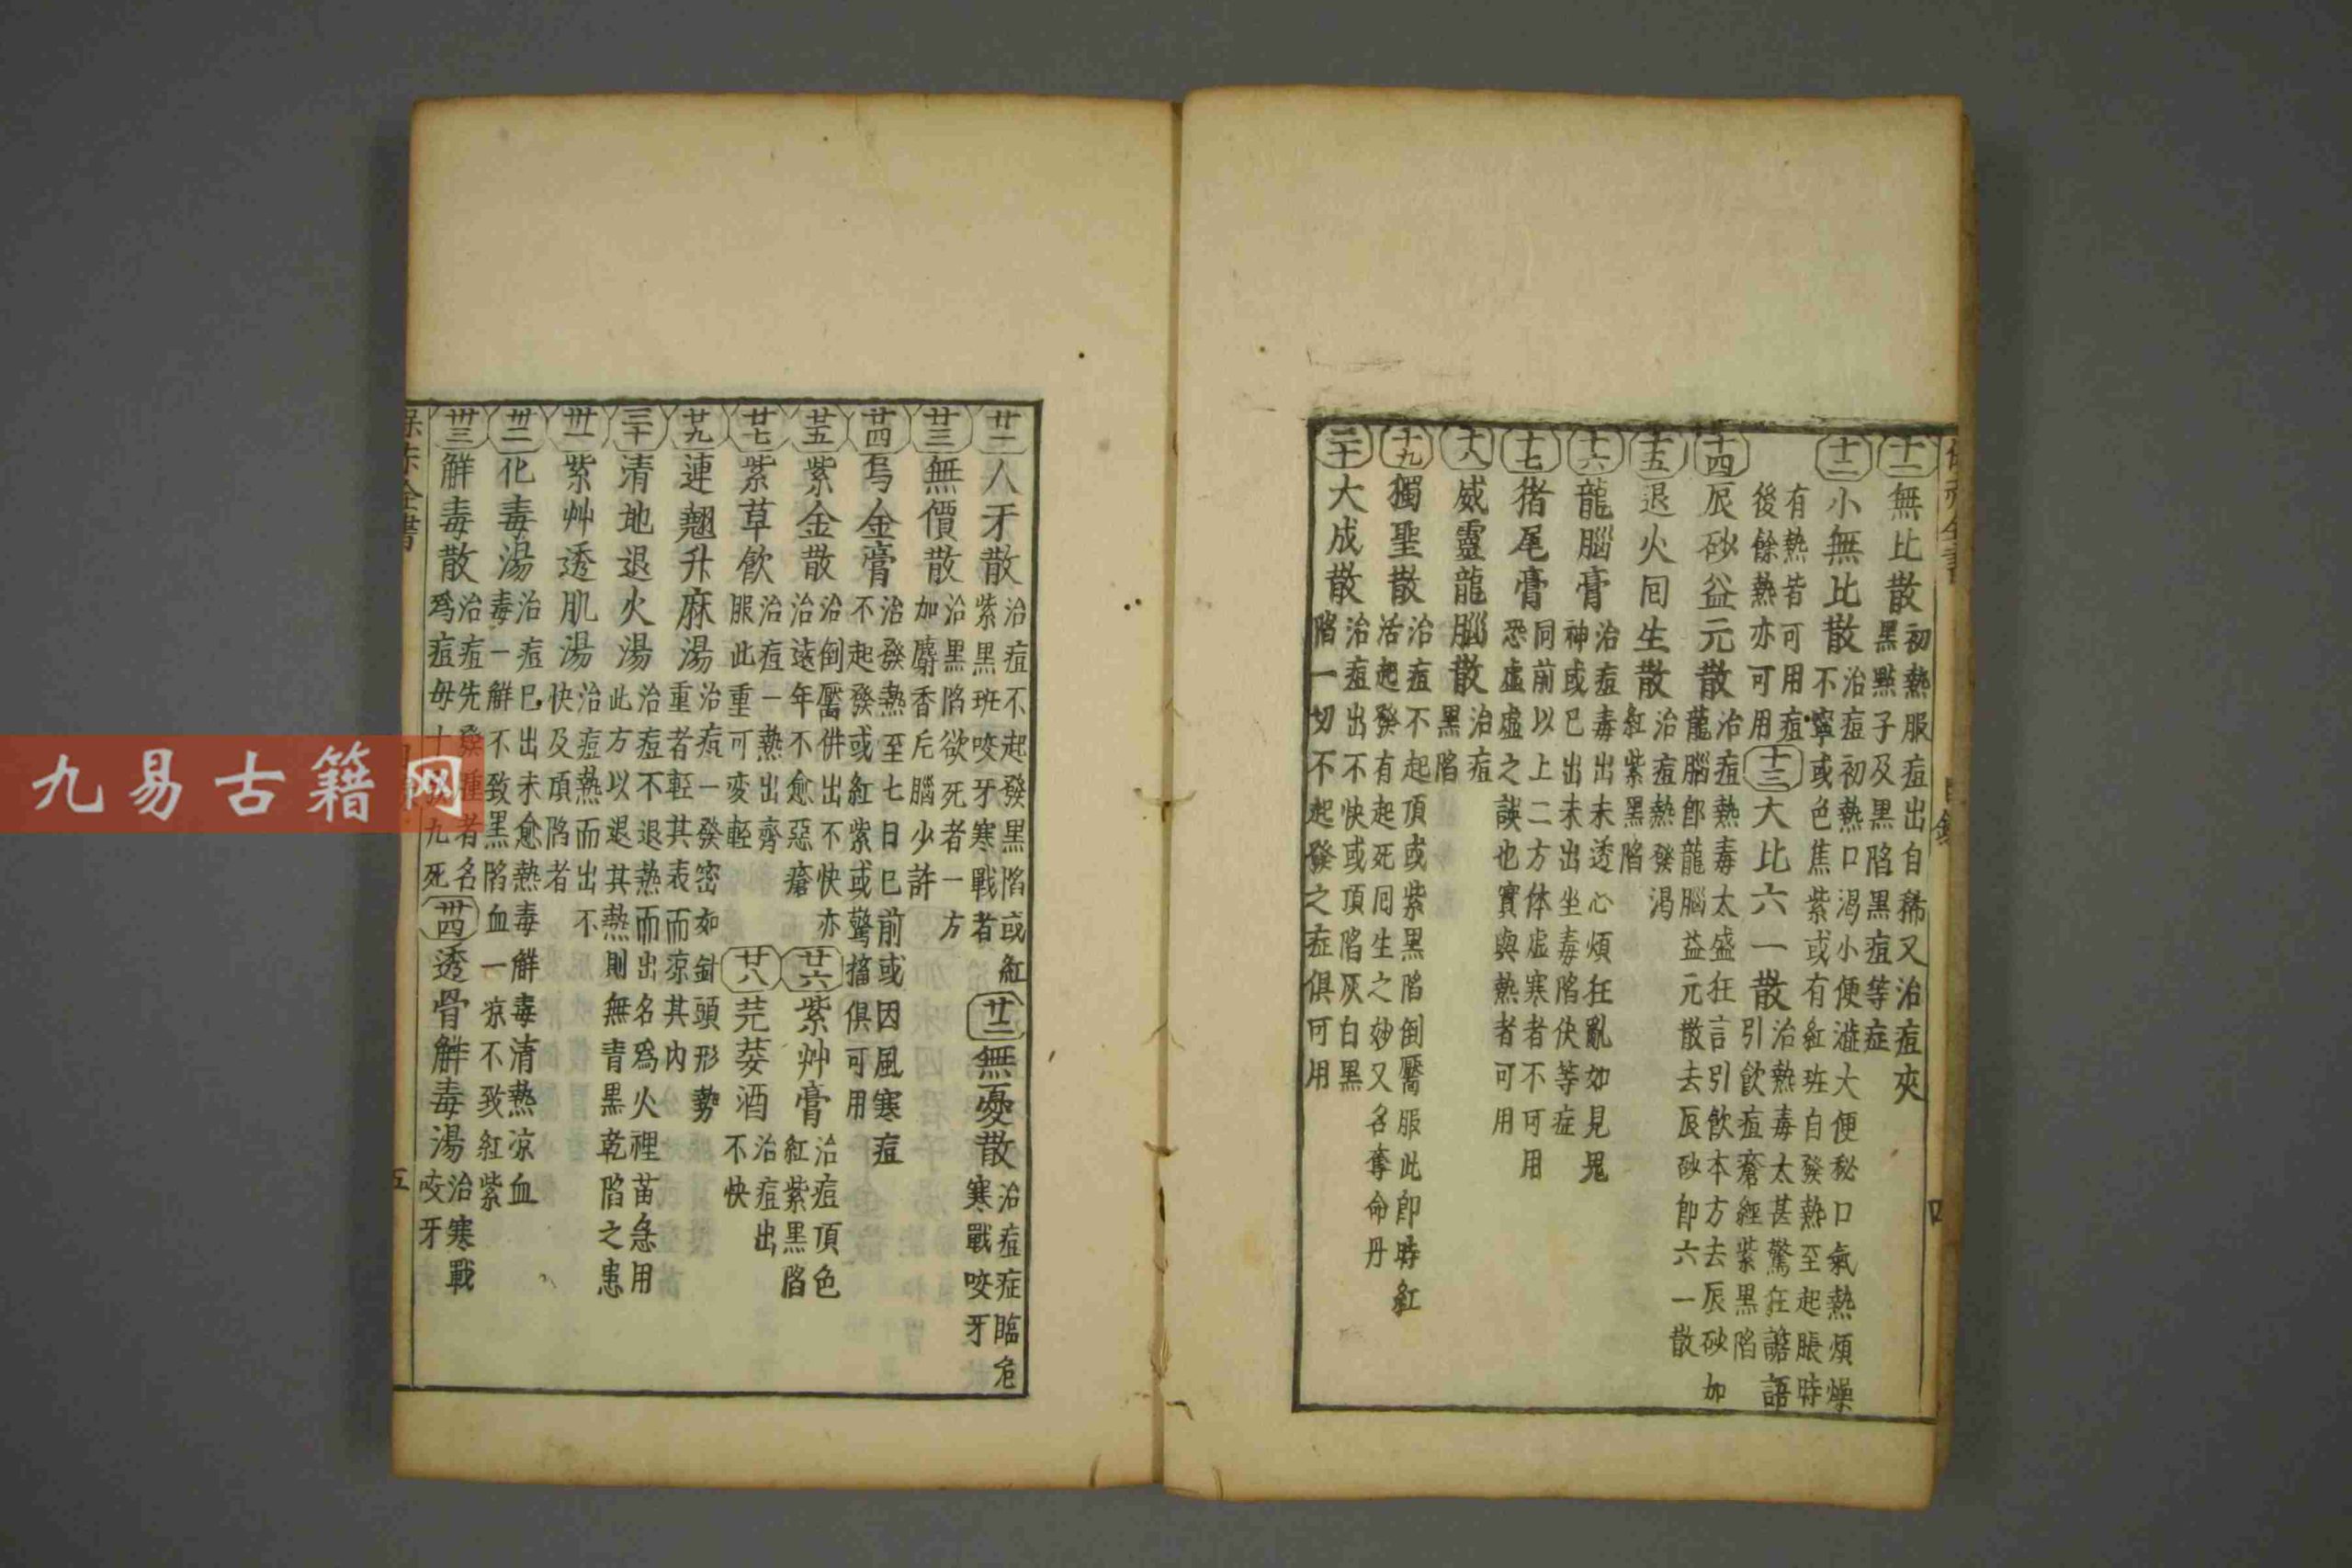 十一無比散初熱服痘出自稀又治痘夾
黑點子及黑陷黑痘等症
十二小無比散治痘初熱口渴小便澁大便秘口氣熱煩燥
不寧或色焦紫或有紅班白發熱至起脹時
有熱若可用痘
後餘熱亦可用
十三大比六一散治熱毒太甚驚狂譫語
引飲痘瘡經紫黑陷
十四辰砂益元散治痘熱毒太盛狂言引飲本方去辰砂加
龍腦郎龍腦益元散去辰砂即六一散
十五退火囘生散治痘熱發渴
紅紫黑陷
十六龍腦膏治痘毒出未透心煩狂亂如見鬼
神或已出未出坐毒陷伏等症
十七猪尾膏同前以上二方体虛寒者不可用
恐虛虛之誤也實與熱者可用
十八威靈龍腦散治痘
黑陷
十九獨聖散治痘不起頂或紫黑陷倒靨服此即時紅
活起發有起死囘生之妙又名奪命丹
二十大成散治痘出不快或頂陷灰白黑
陷一切不起發之症俱可用
廿一人牙散治痘不起發黑陷或紅
紫黑班咬牙寒戰者
廿二無憂散治痘症臨危
寒戰咬牙
廿三無價散治黑陷欲死者一方
加麝香片腦少許
廿四烏金膏治發熱至七日已前或因風寒痘
不起發或紅紫或驚搐俱可用
廿五紫金散治倒靨倂出不快亦
治遠年不愈惡瘡
廿六紫艸膏治痘頂色
紅紫黑陷
廿七紫草飲治痘一熱出齊
服此重可变輕
廿八芫荽酒治痘出
不快
廿九連翹升麻湯治痘一發密如針頭形勢
重者輕其表而凉其内
三十清地退火湯治痘不退熱而出名爲火裡苗急用
此方以退其熱則無青黑乾陷之患
卅一紫艸透肌湯治痘熱而出不
快及頂陷者
卅二化毒湯治痘已出未愈熱毒觧毒清熱凉血
毒一觧不致黑陷血一凉不致紅紫
卅三觧毒散治痘先發腫者名
爲痘母十九死
卅四透骨觧毒湯治寒戰
咬牙
五
九易古籍网